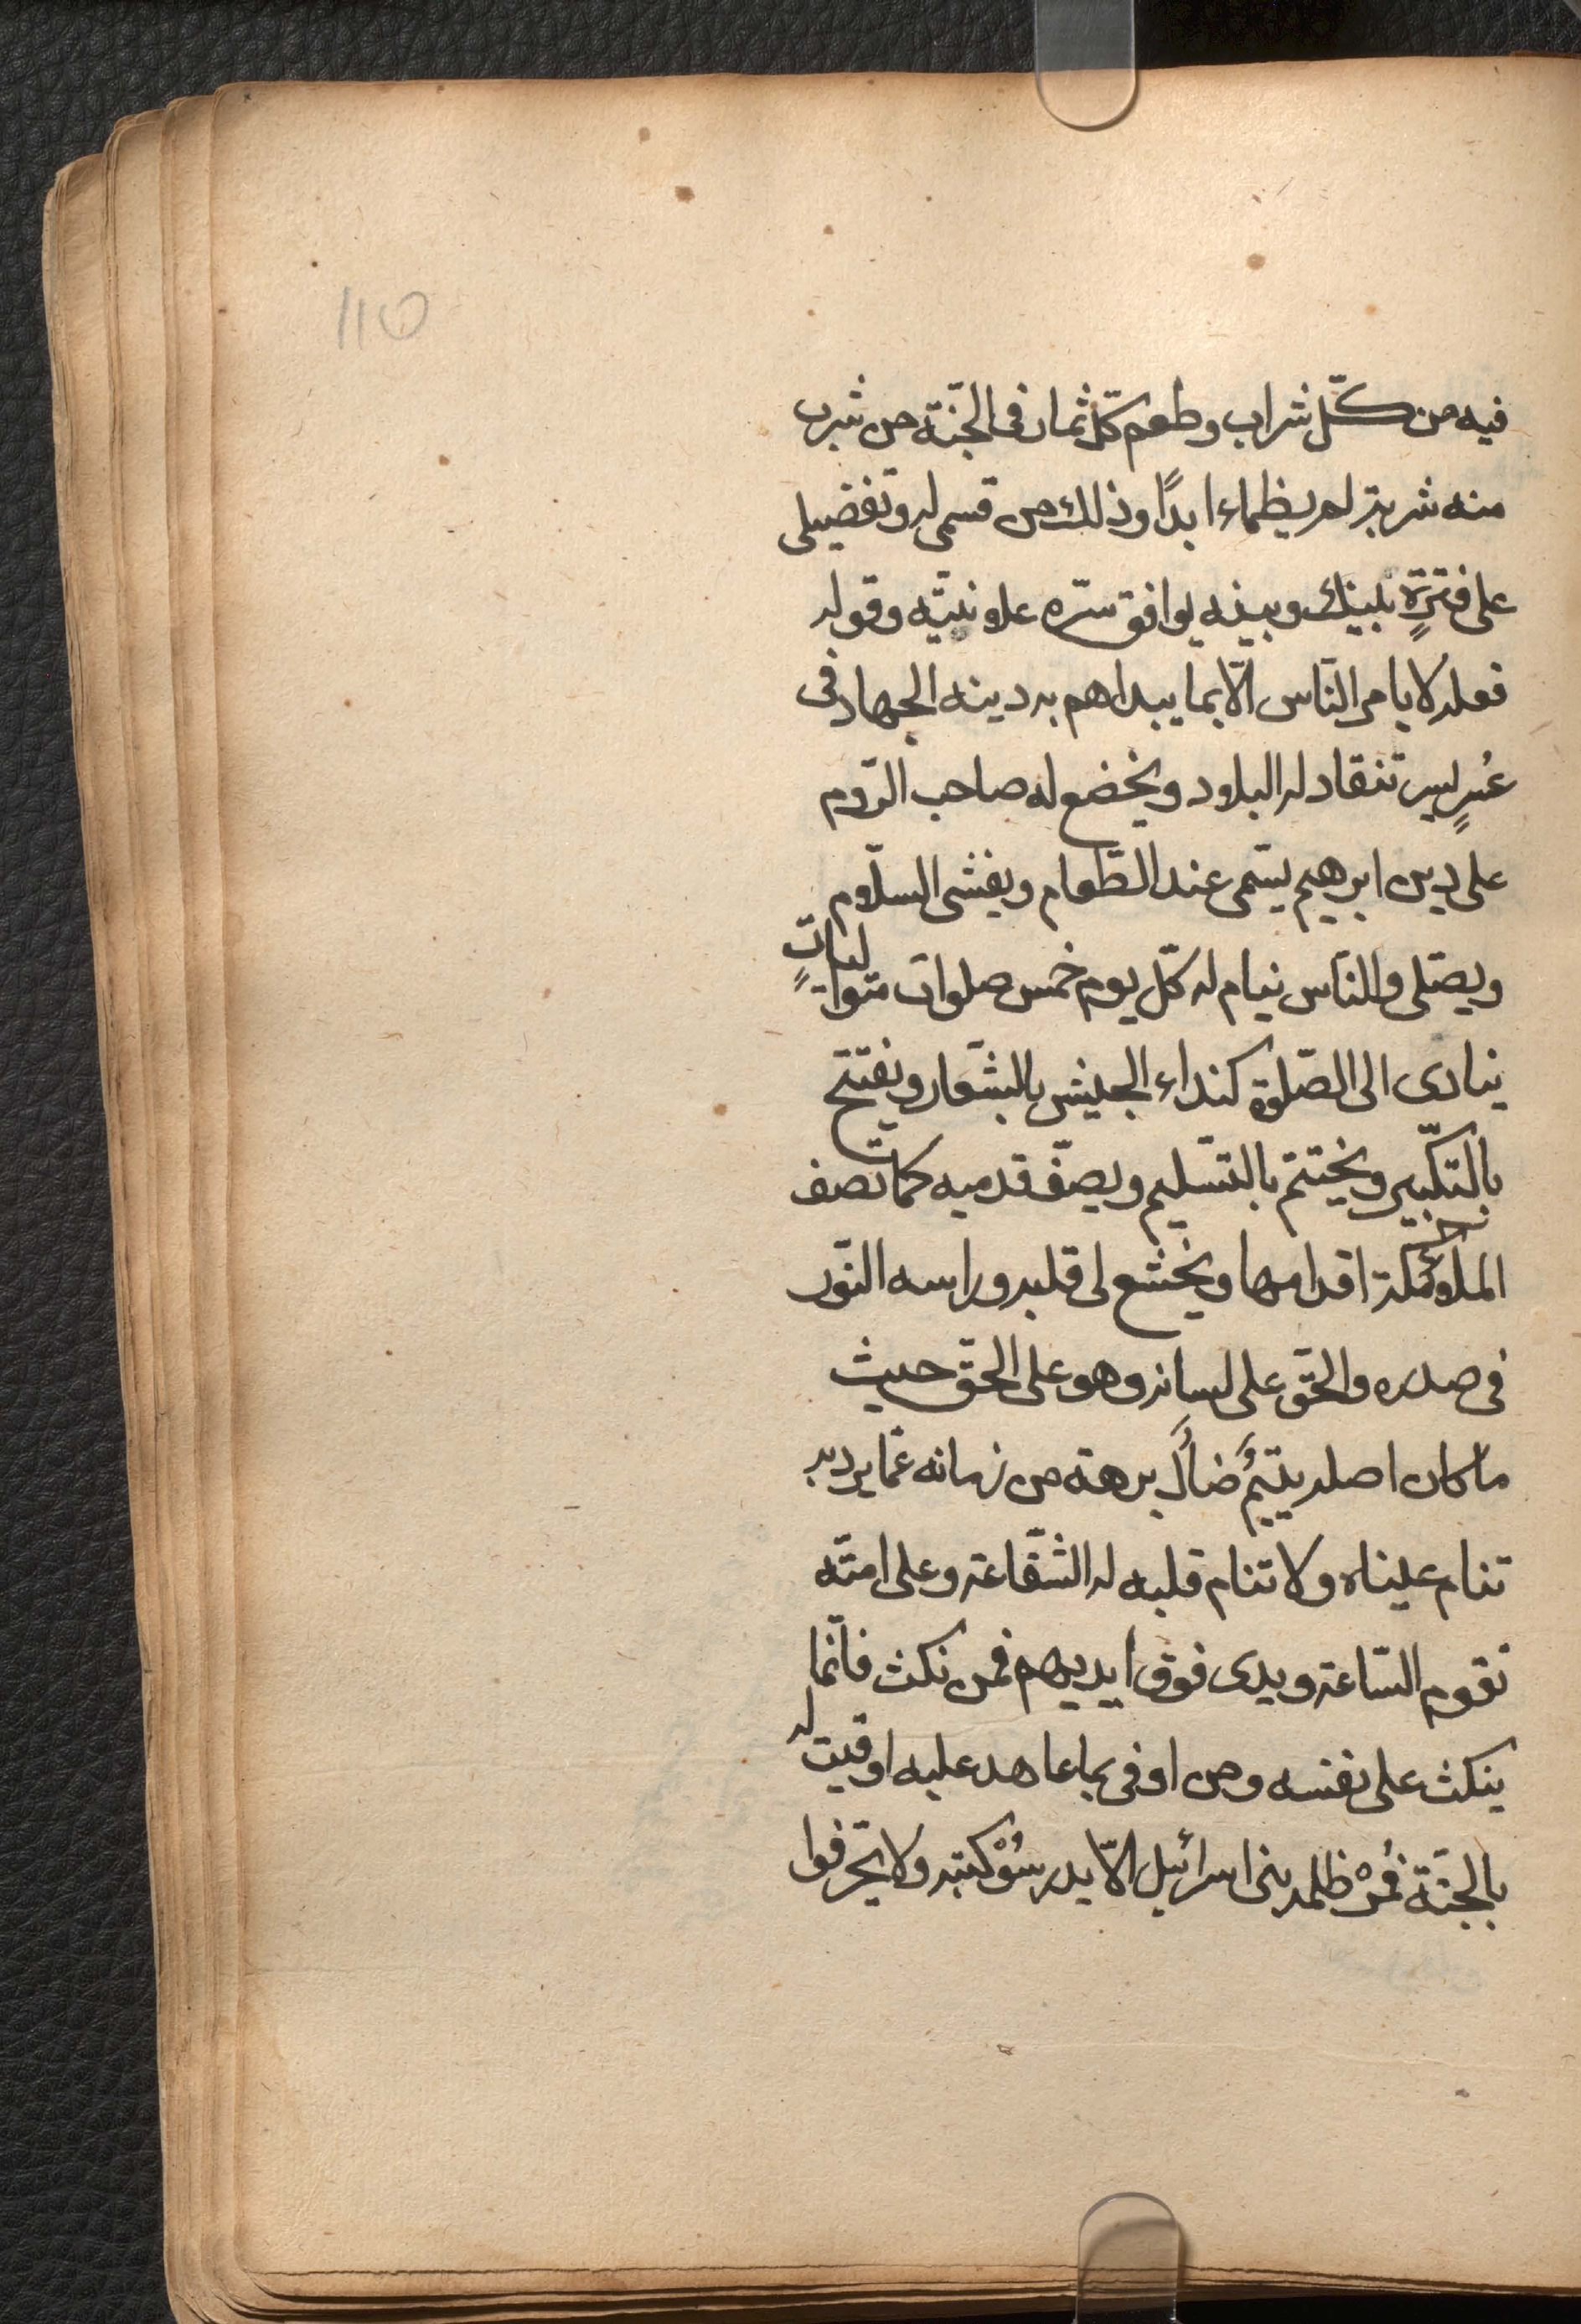 110
فيه من كلّ شراب وطعم كلّ ثمار فى الجنّة من شرب
منه شربة لم يظماء ابدًا وذلك من قسمى له وتفضيلى
على فترةٍ بينك وبينه يوافق سرّه علانيّته وقوله
فعله لا يامر النّاس الّا بما يبداهم به دينه الجهاد فى
عُسرٍ يسر تنقاد له البلاد ويخضع له صاحب الرّوم
على دين ابرهيم يسّمى عند الطّعام ويفشى السلّام
ويصّلى والنّاس نيام له كلّ يوم خمس صلوات متواليات
ينادى الى الصّلوة كنداء الجيش بالشّعار ويفتتح
بالتكّبير ويختتم بالتسّليم ويصفّ قدميه كما تصف
الملائكة اقدامها ويخشع لى قلبه وراسه النّور
فى صدره والحّق على لسانه وهو على الحق حيث
ما كان اصله يتيمٌ ضالٌ برهة من زمانه عمّا يرد به
تنام عيناه ولا تنام قلبه له الشّفاعة وعلى امتّه
تقوم السّاعة ويدى فوق ايديهم فمن نكث فانّما
ينكث على نفسه ومن اوفى بما عاهد عليه اوفيت له
بالجنّة فمُرْ ظلمه بنى اسرائيل الّا يدرسُوْ كتبه ولا يحّرفوا